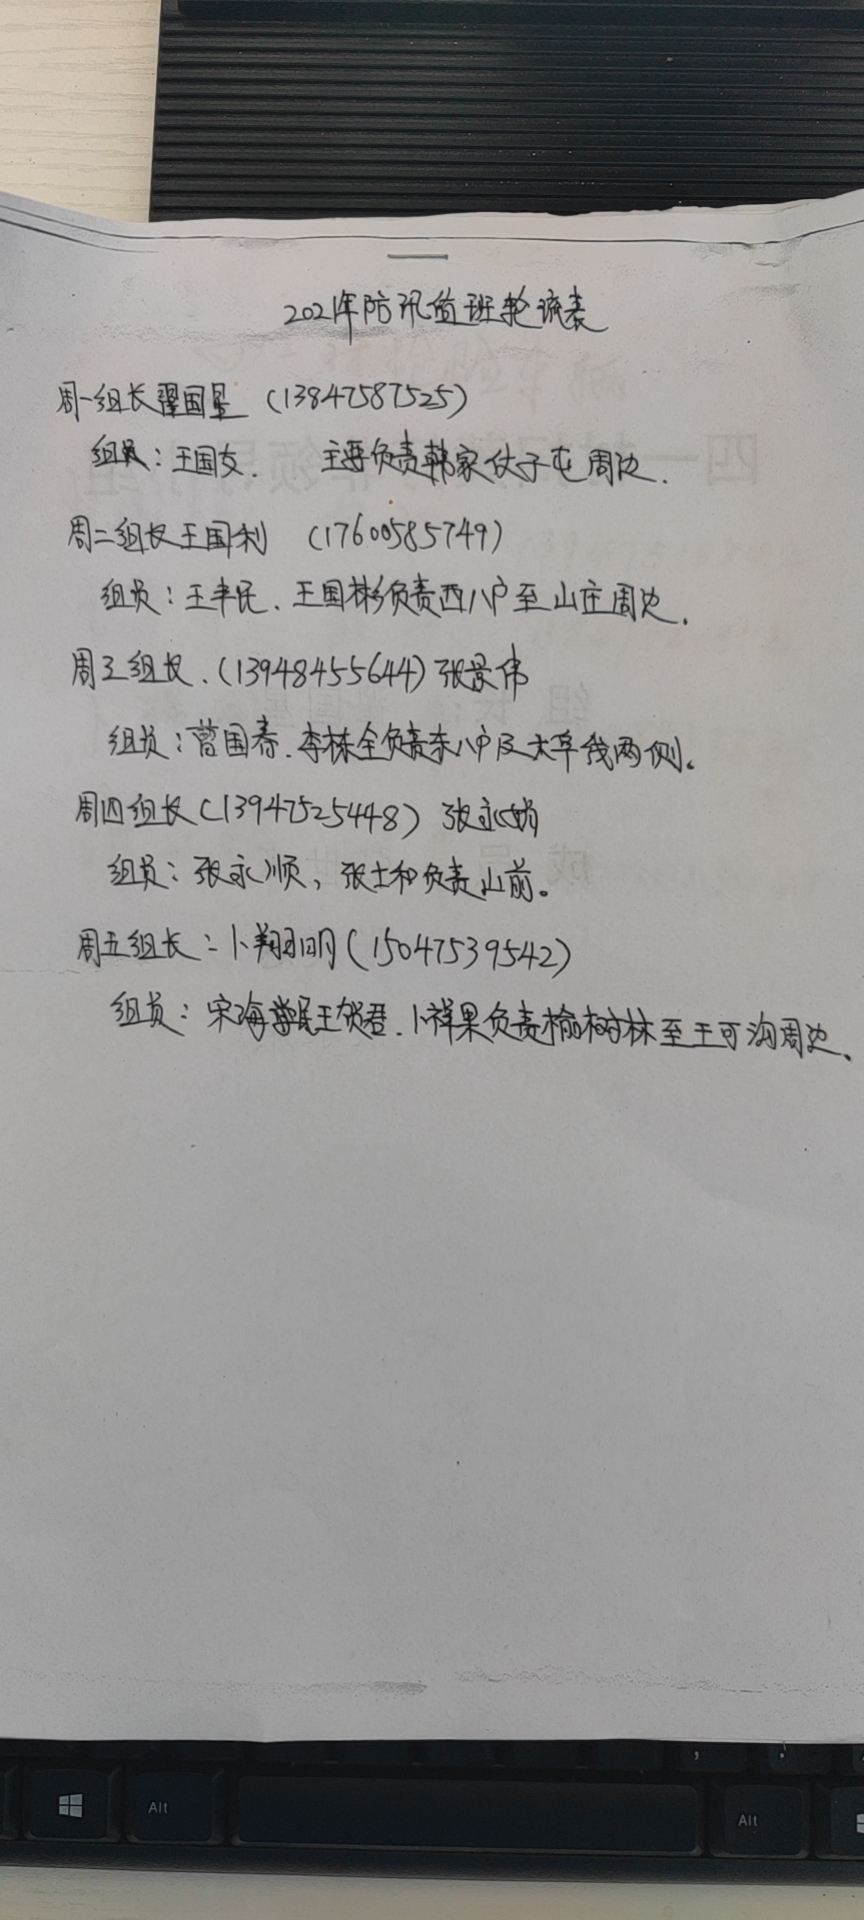 2021年防汛值班轮流表
周一组长翟国星 (13847587525)
组员：王国友. 主要负责韩家伙子屯周边.
周二组长王国利 (17600585749)
组员：王丰民、王国彬负责西八户至山庄周边.
周三组长.(13948455644)张景伟
组员：曹国春.李栋全负责东八户及大阜线两侧。
周四组长(13947525448) 张永娟
组员：张永顺，张士和负责山前。
周五组长：卜翔明(15047539542)
组员：宋海 民王贺君.卜祥果负责榆树林至王可沟周边、
Alt
Alt